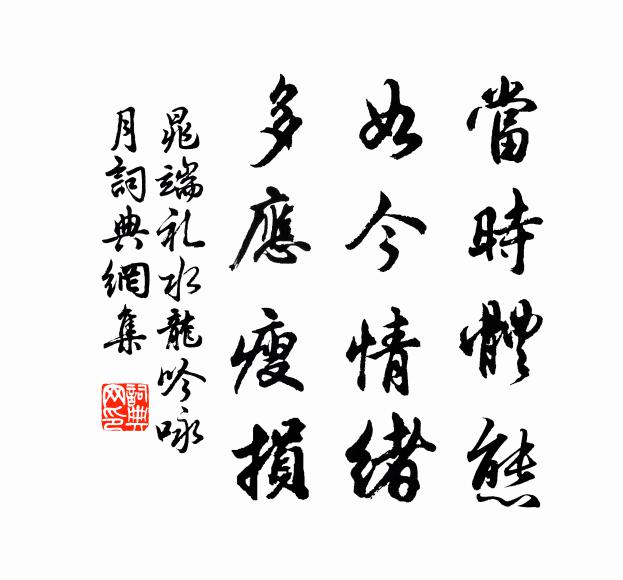 當時體態
如今情緒
多應瘦損
晁端礼水龍吟咏
月詞典網集
詞典
网印